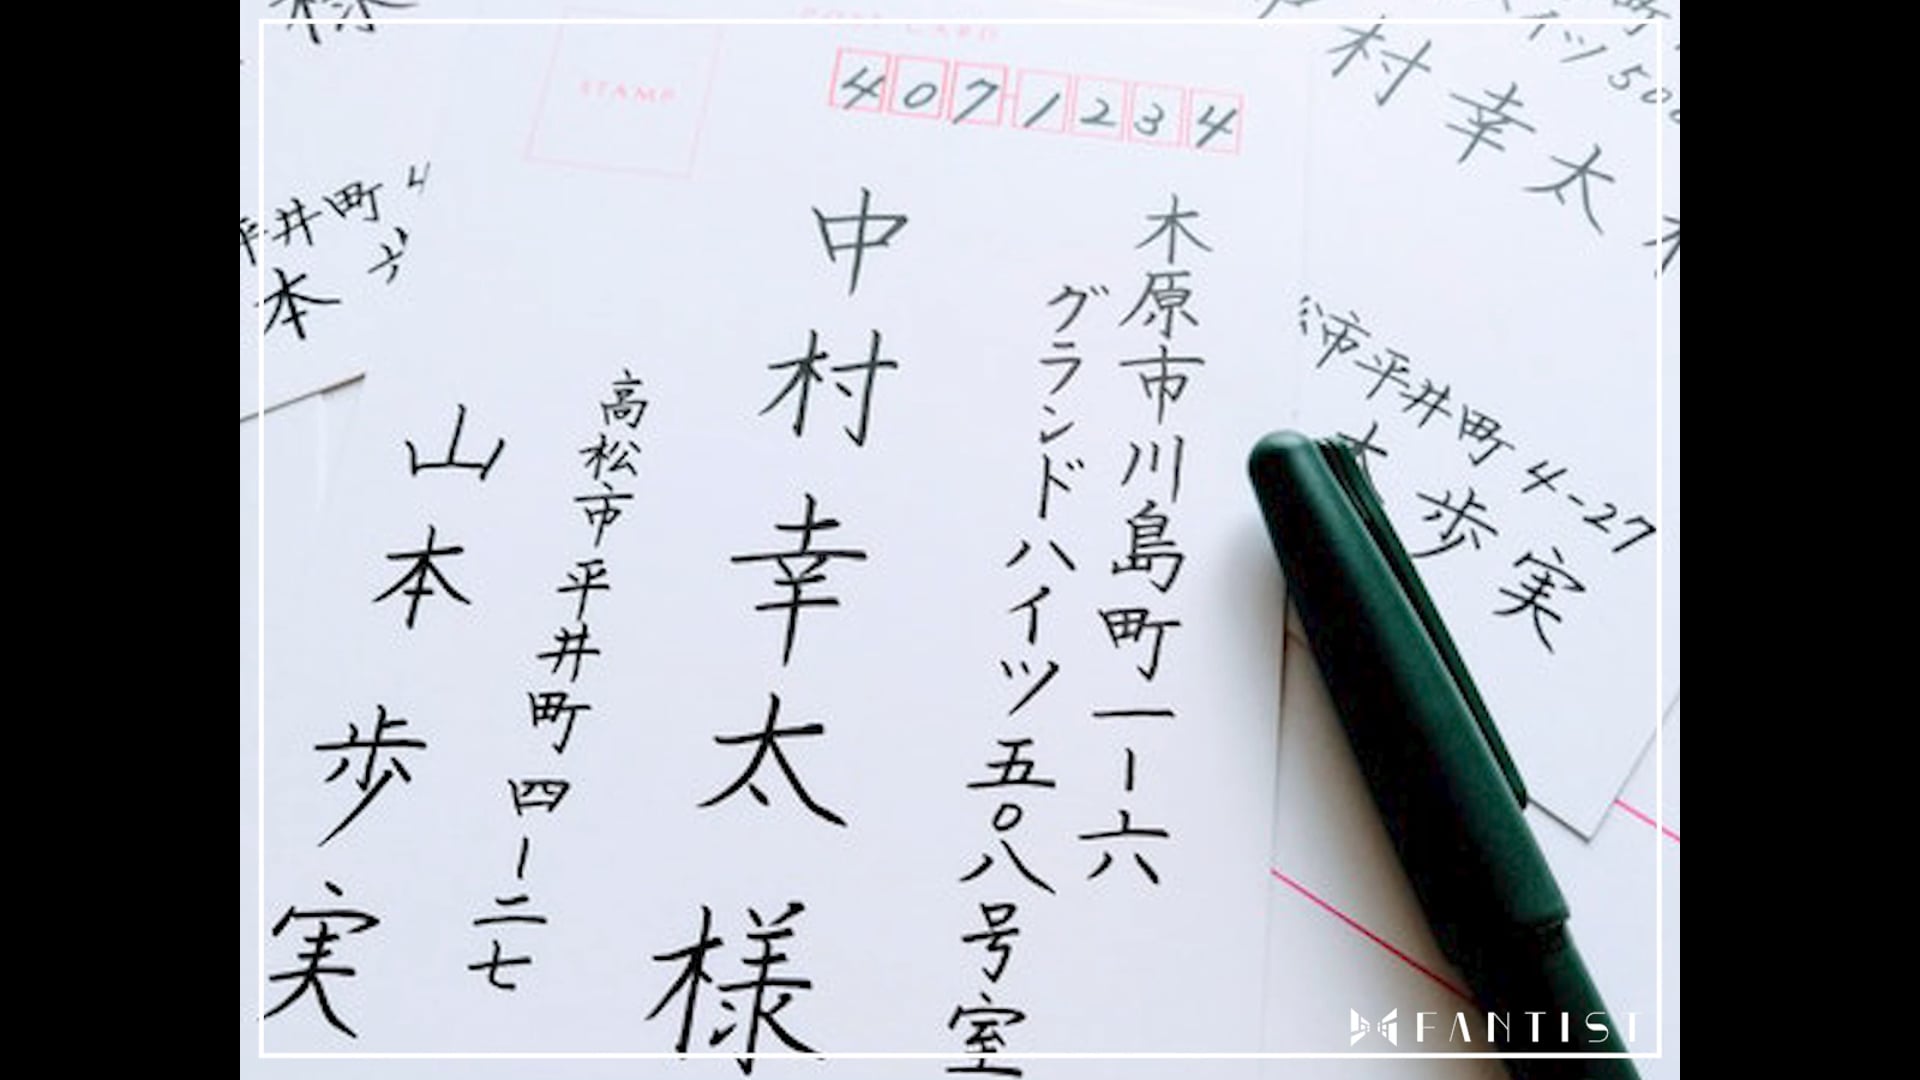 POST CARD
STAMP
4071234
木原市川島町一ー六
グランドハイツ五〇八号室
中村幸太様
高松市平井町四ー二七
山本歩実
様
平井町 4
本
町
イツ 508
中村幸太
市平井町 4-27
本歩実
FANTIST